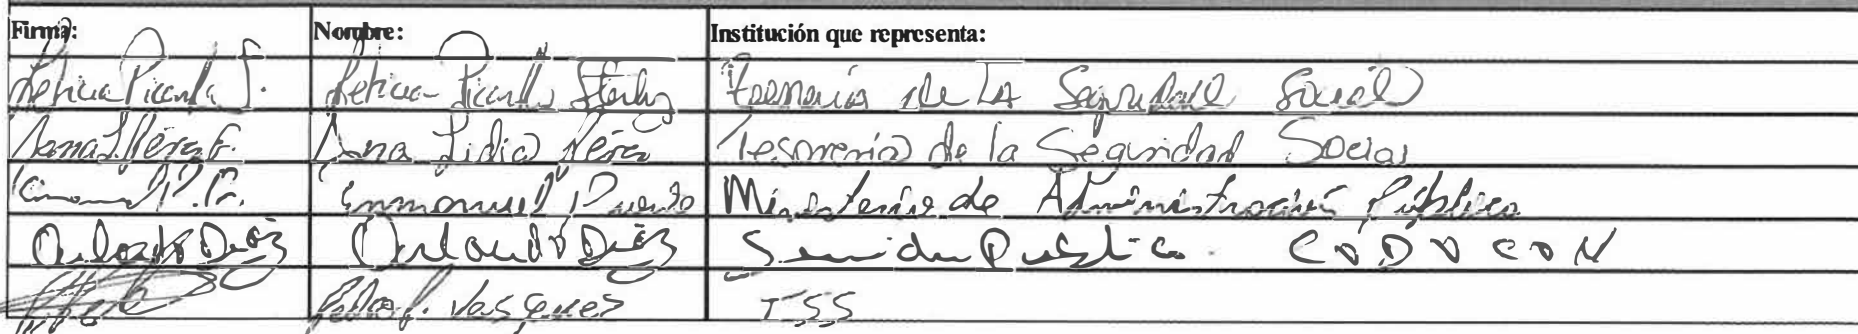 Firma: Nombre: Institución que representa:
Leticia Leticia Tesorería de la Seguridad Social
Ana L. Pérez F. Ana Lidia Pérez Tesorería de la Seguridad Social
P. Enmanuel Puente Ministerio de Administración Pública
Orlando Díaz Orlando Díaz Servidor Público CODOCON
Vasquez TSS